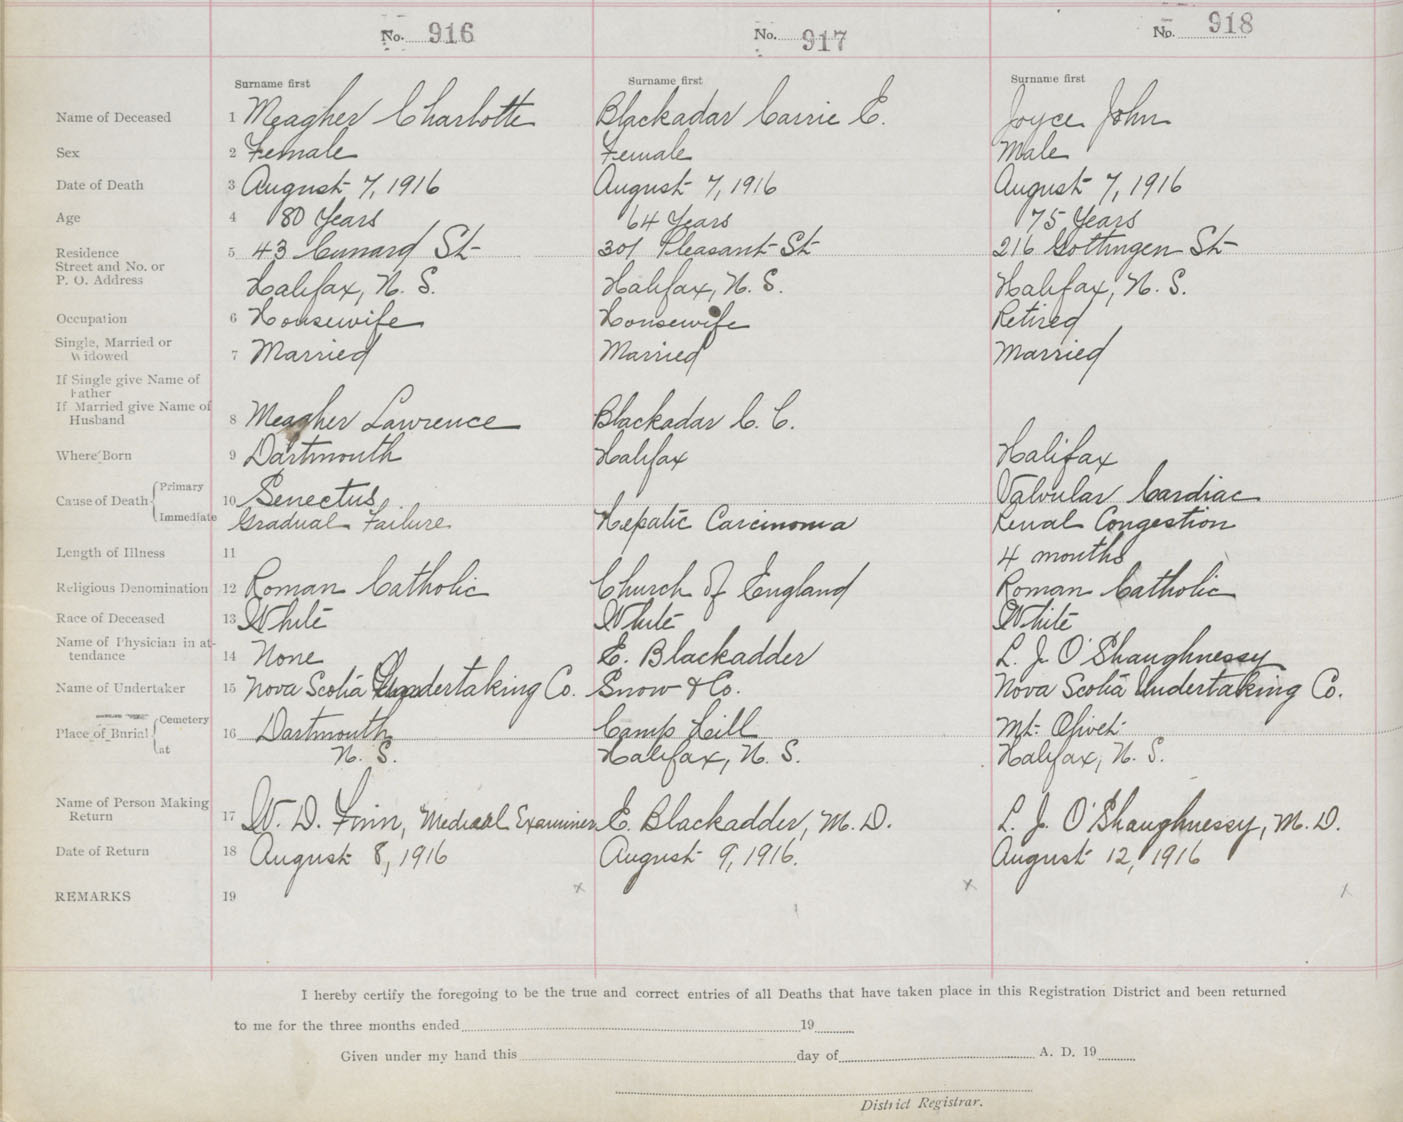 No. 916 No. 917 No. 918
Surname first Surname first Surname first
Name of Deceased 1 Meagher Charlotte Blackadar Carrie E. Joyce John
Sex 2 Female Female Male
Date of Death 3 August 7, 1916 August 7, 1916 August 7, 1916
Age 4 80 Years 64 Years 75 Years
Residence 5 43 Cunard St 301 Pleasant St 216 Gottingen St
Street and No. or
P. O. Address Halifax, N. S. Halifax, N. S. Halifax, N. S.
Occupation 6 Housewife Housewife Retired
Single, Married or
Widowed 7 Married Married Married
If Single give Name of
Father
If Married give Name of
Husband 8 Meagher Lawrence Blackadar C. C.
Where Born 9 Dartmouth Halifax Halifax
Cause of Death Primary 10 Senectus Valvular Cardiac
Immediate Gradual Failure Hepatic Carcinoma Renal Congestion
Length of Illness 11 4 months
Religious Denomination 12 Roman Catholic Church of England Roman Catholic
Race of Deceased 13 White White White
Name of Physician in at-
tendance 14 None E. Blackadder L. J. O'Shaughnessy
Name of Undertaker 15 Nova Scotia Undertaking Co. Snow & Co. Nova Scotia Undertaking Co.
Place of Burial Cemetery 16 Dartmouth Camp Hill Mt. Olivet
at N. S. Halifax, N. S. Halifax, N. S.
Name of Person Making
Return 17 W. D. Finn, Medical Examiner E. Blackadder, M. D. L. J. O'Shaughnessy, M. D.
Date of Return 18 August 8, 1916 August 9, 1916. August 12, 1916
REMARKS 19
I hereby certify the foregoing to be the true and correct entries of all Deaths that have taken place in this Registration District and been returned
to me for the three months ended 19
Given under my hand this day of A. D. 19
District Registrar.